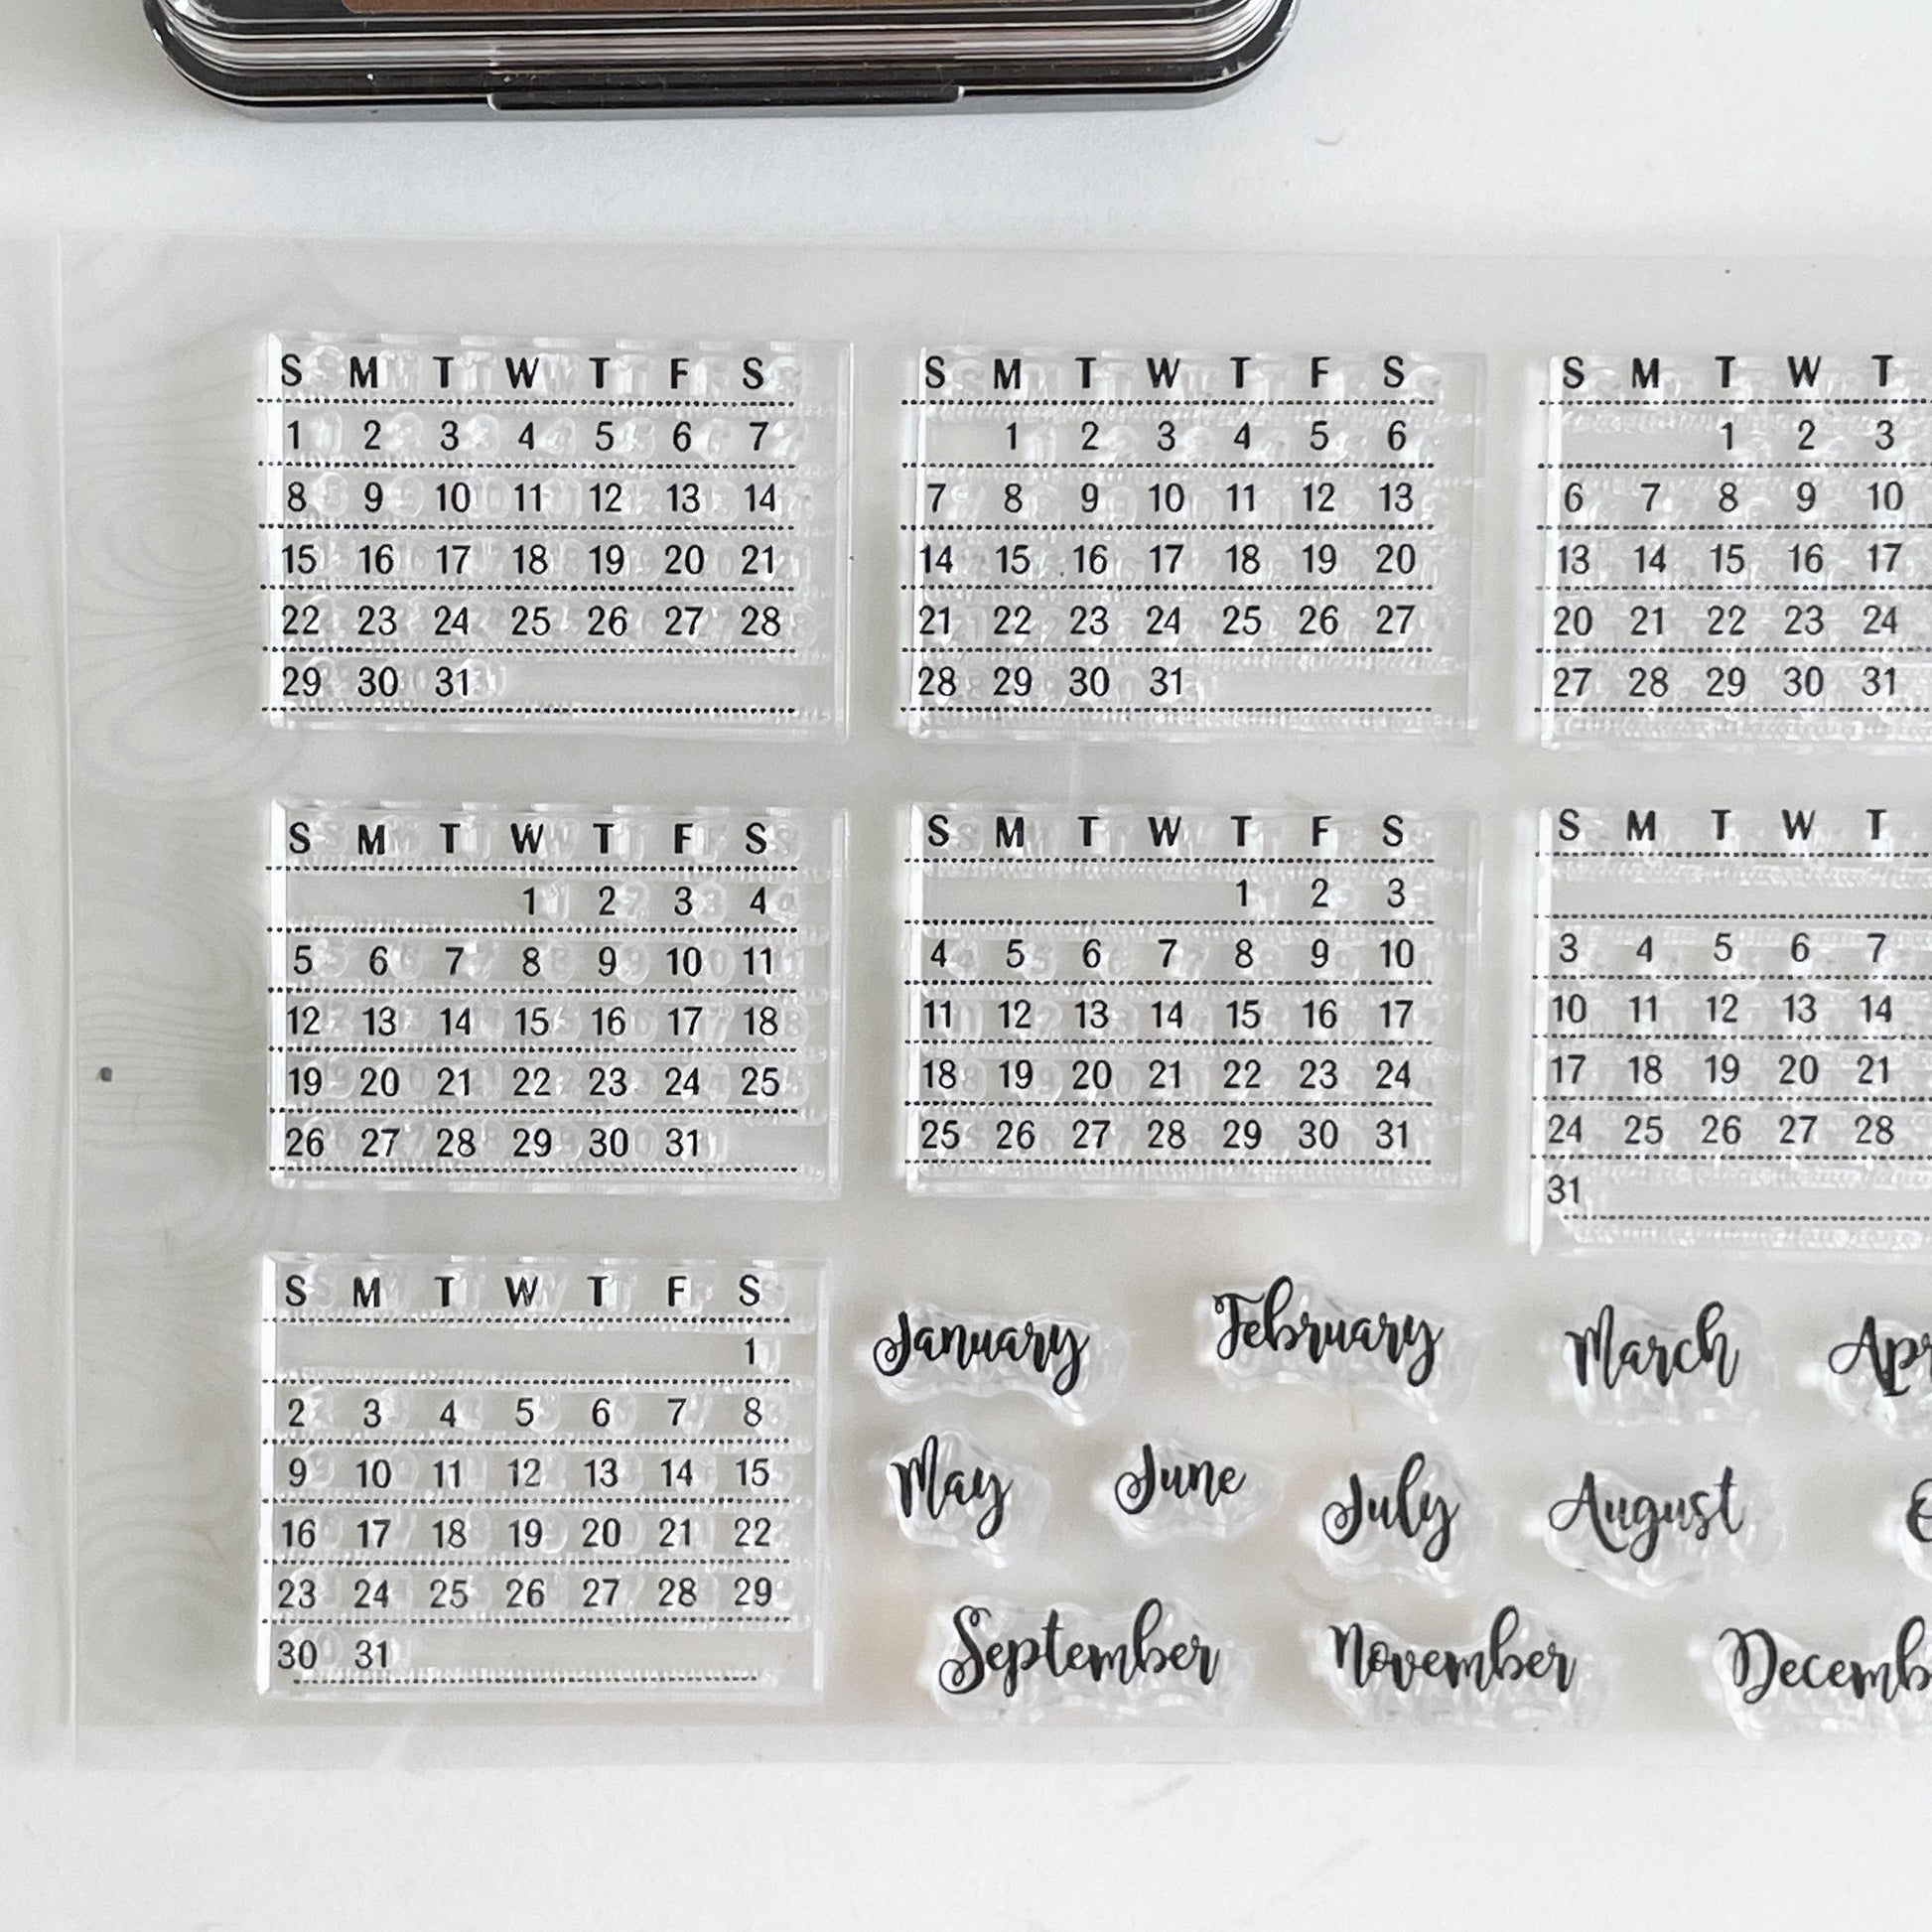 S M T W T F S
1 2 3 4 5 6 7
8 9 10 11 12 13 14
15 16 17 18 19 20 21
22 23 24 25 26 27 28
29 30 31
S M T W T F S
1 2 3 4 5 6
7 8 9 10 11 12 13
14 15 16 17 18 19 20
21 22 23 24 25 26 27
28 29 30 31
S M T W T
1 2 3
6 7 8 9 10
13 14 15 16 17
20 21 22 23 24
27 28 29 30 31
S M T W T F S
1 2 3 4
5 6 7 8 9 10 11
12 13 14 15 16 17 18
19 20 21 22 23 24 25
26 27 28 29 30 31
S M T W T F S
1 2 3
4 5 6 7 8 9 10
11 12 13 14 15 16 17
18 19 20 21 22 23 24
25 26 27 28 29 30 31
S M T W T
3 4 5 6 7
10 11 12 13 14
17 18 19 20 21
24 25 26 27 28
31
S M T W T F S
1
2 3 4 5 6 7 8
9 10 11 12 13 14 15
16 17 18 19 20 21 22
23 24 25 26 27 28 29
30 31
January February March Apr
May June July August
September November Decemb